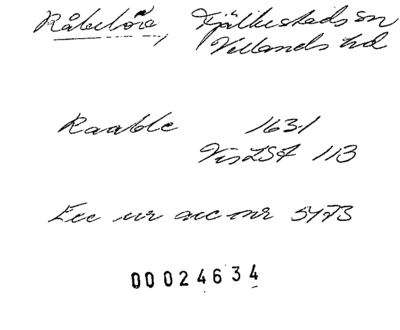 Råbelöv, Fjälkestads sn
Villands hd
Raable 1631
Vis LSA 113
Exc ur acc nr 5473
00024634